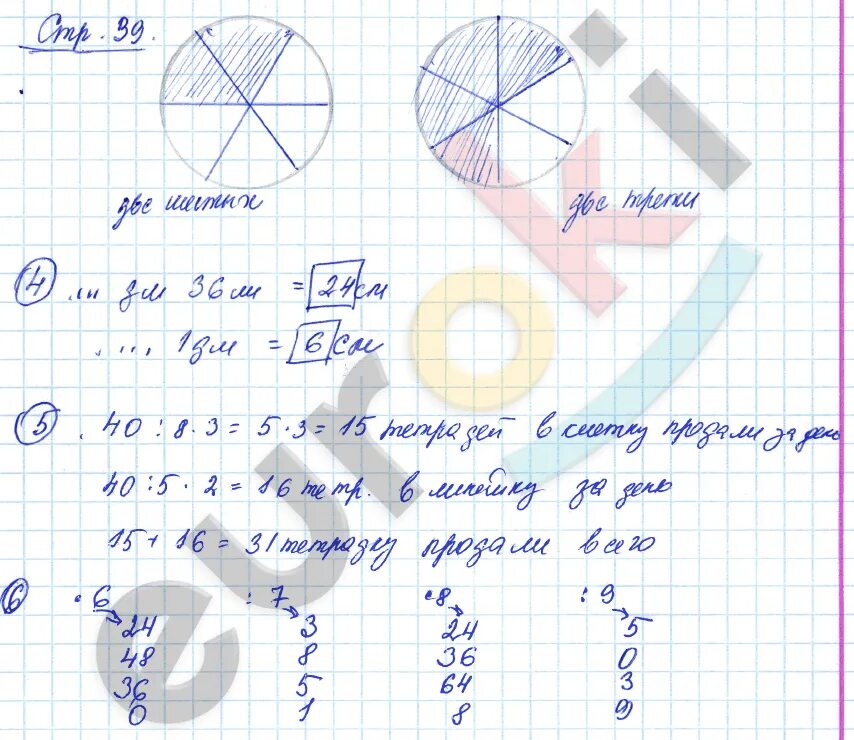 Стр. 39.
две шестых
две трети
4 ... дм 36 мм = 24 см
... 1 дм = 6 см
5 . 40 : 8 · 3 = 5 · 3 = 15 тетрадей в клетку продали за день
40 : 5 · 2 = 16 тетр. в линейку за день
15 + 16 = 31 тетрадку продали всего
6 · 6 : 7 · 8 : 9
24 3 24 5
48 8 36 0
36 5 64 3
0 1 8 9
euroki